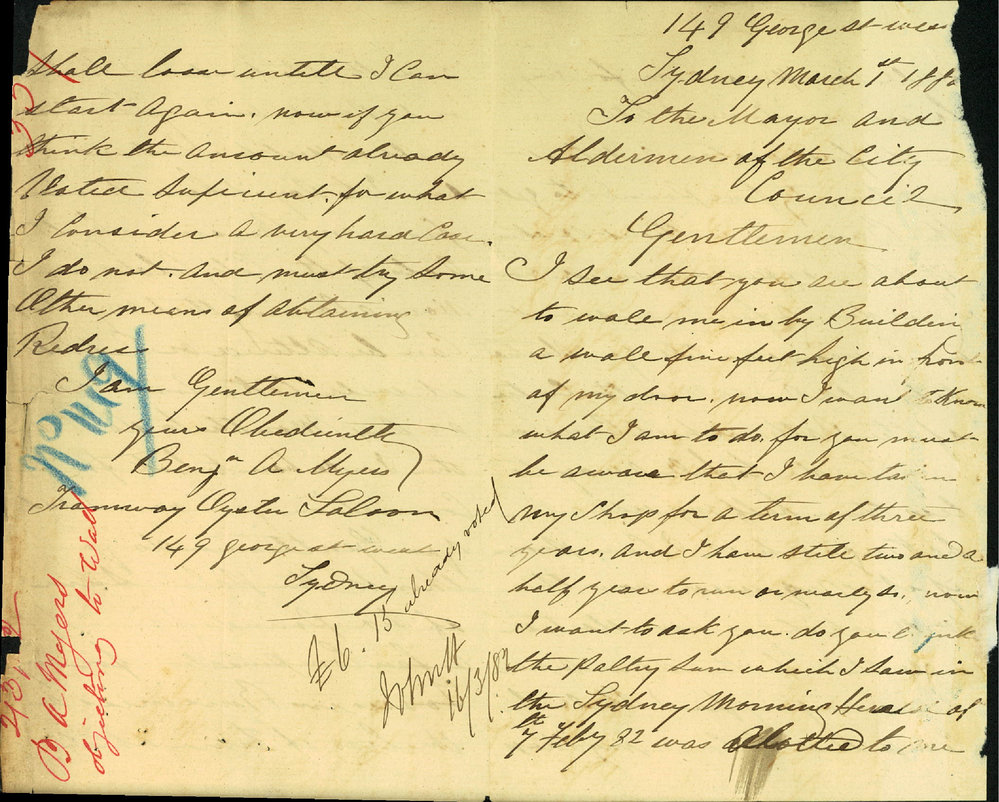 149 George st west
Sydney March 1st 188
To the Mayor and
Aldermen of the City
Council
Gentlemen
I see that you are about
to wale me in by Buildin
a wale five feet high in front
of my door. now I want to Know
what I am to do. for you must
be aware that I have ta
my Shop for a term of three
years. and I have stile two and a
half years to run or nearly so. now
I want to ask you. do you
the Paltry Sum which I saw in
the Sydney Morning Herald of
7th Feby 82 was alotted to me
shall loose untill I Can
start Again. now if you
think the amount already
Voted Suficient. for what
I Consider a very hard Case.
I do not. and must try Some
Other means of obtaining
Redres
I am Gentlemen
yours Obedientle
Benjn A Myers
Tramway Oyster Saloon
149 george st west
Sydney
£6. 15 already voted
16/3/82
B A Myers
objecting to Wall